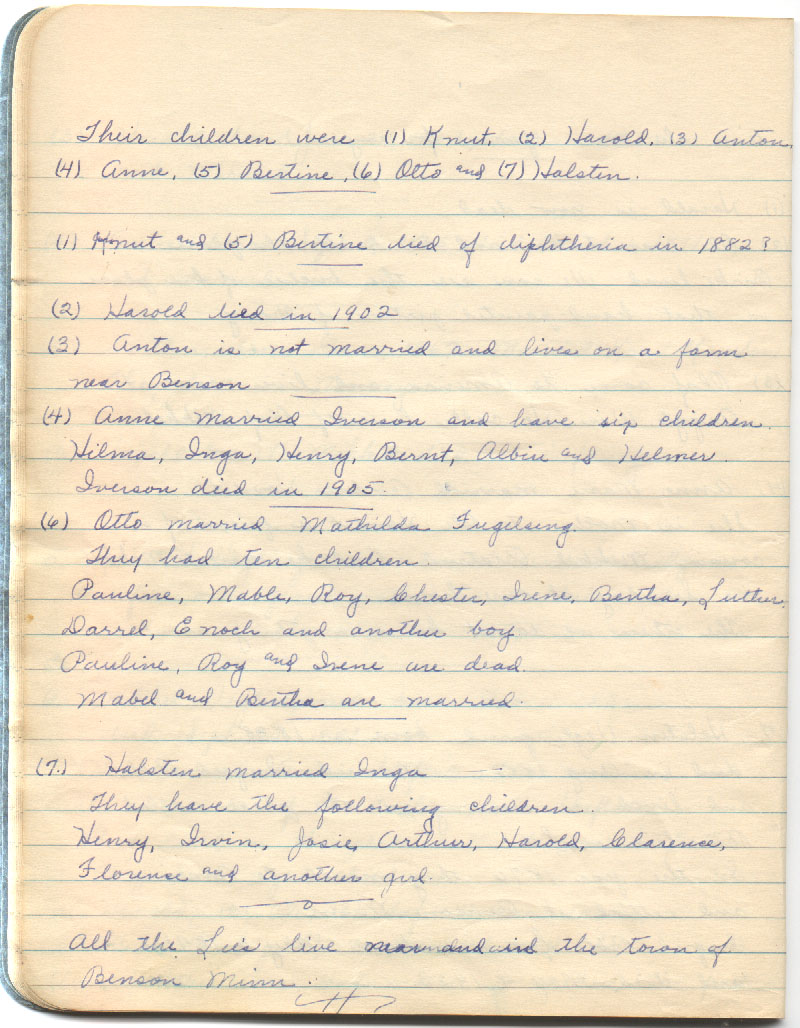 Their children were (1) Knut, (2) Harold, (3) Anton,
(4) Anne, (5) Bertine, (6) Otto and (7) Halsten.
(1) Knut and (5) Bertine died of diphtheria in 1882?
(2) Harold died in 1902
(3) Anton is not married and lives on a farm
near Benson
(4) Anne married Iverson and have six children.
Hilma, Inga, Henry, Bernt, Albin and Helmer.
Iverson died in 1905.
(6) Otto married Mathilda Fugelseng.
They had ten children.
Pauline, Mable, Roy, Chester, Irene, Bertha, Luther,
Darrel, Enoch and another boy
Pauline, Roy and Irene are dead.
Mabel and Bertha are married.
(7.) Halsten married Inga —
They have the following children.
Henry, Irvin, Josie, Arthur, Harold, Clarence,
Florence and another girl.
All the Lees live near and in the town of
Benson Minn.